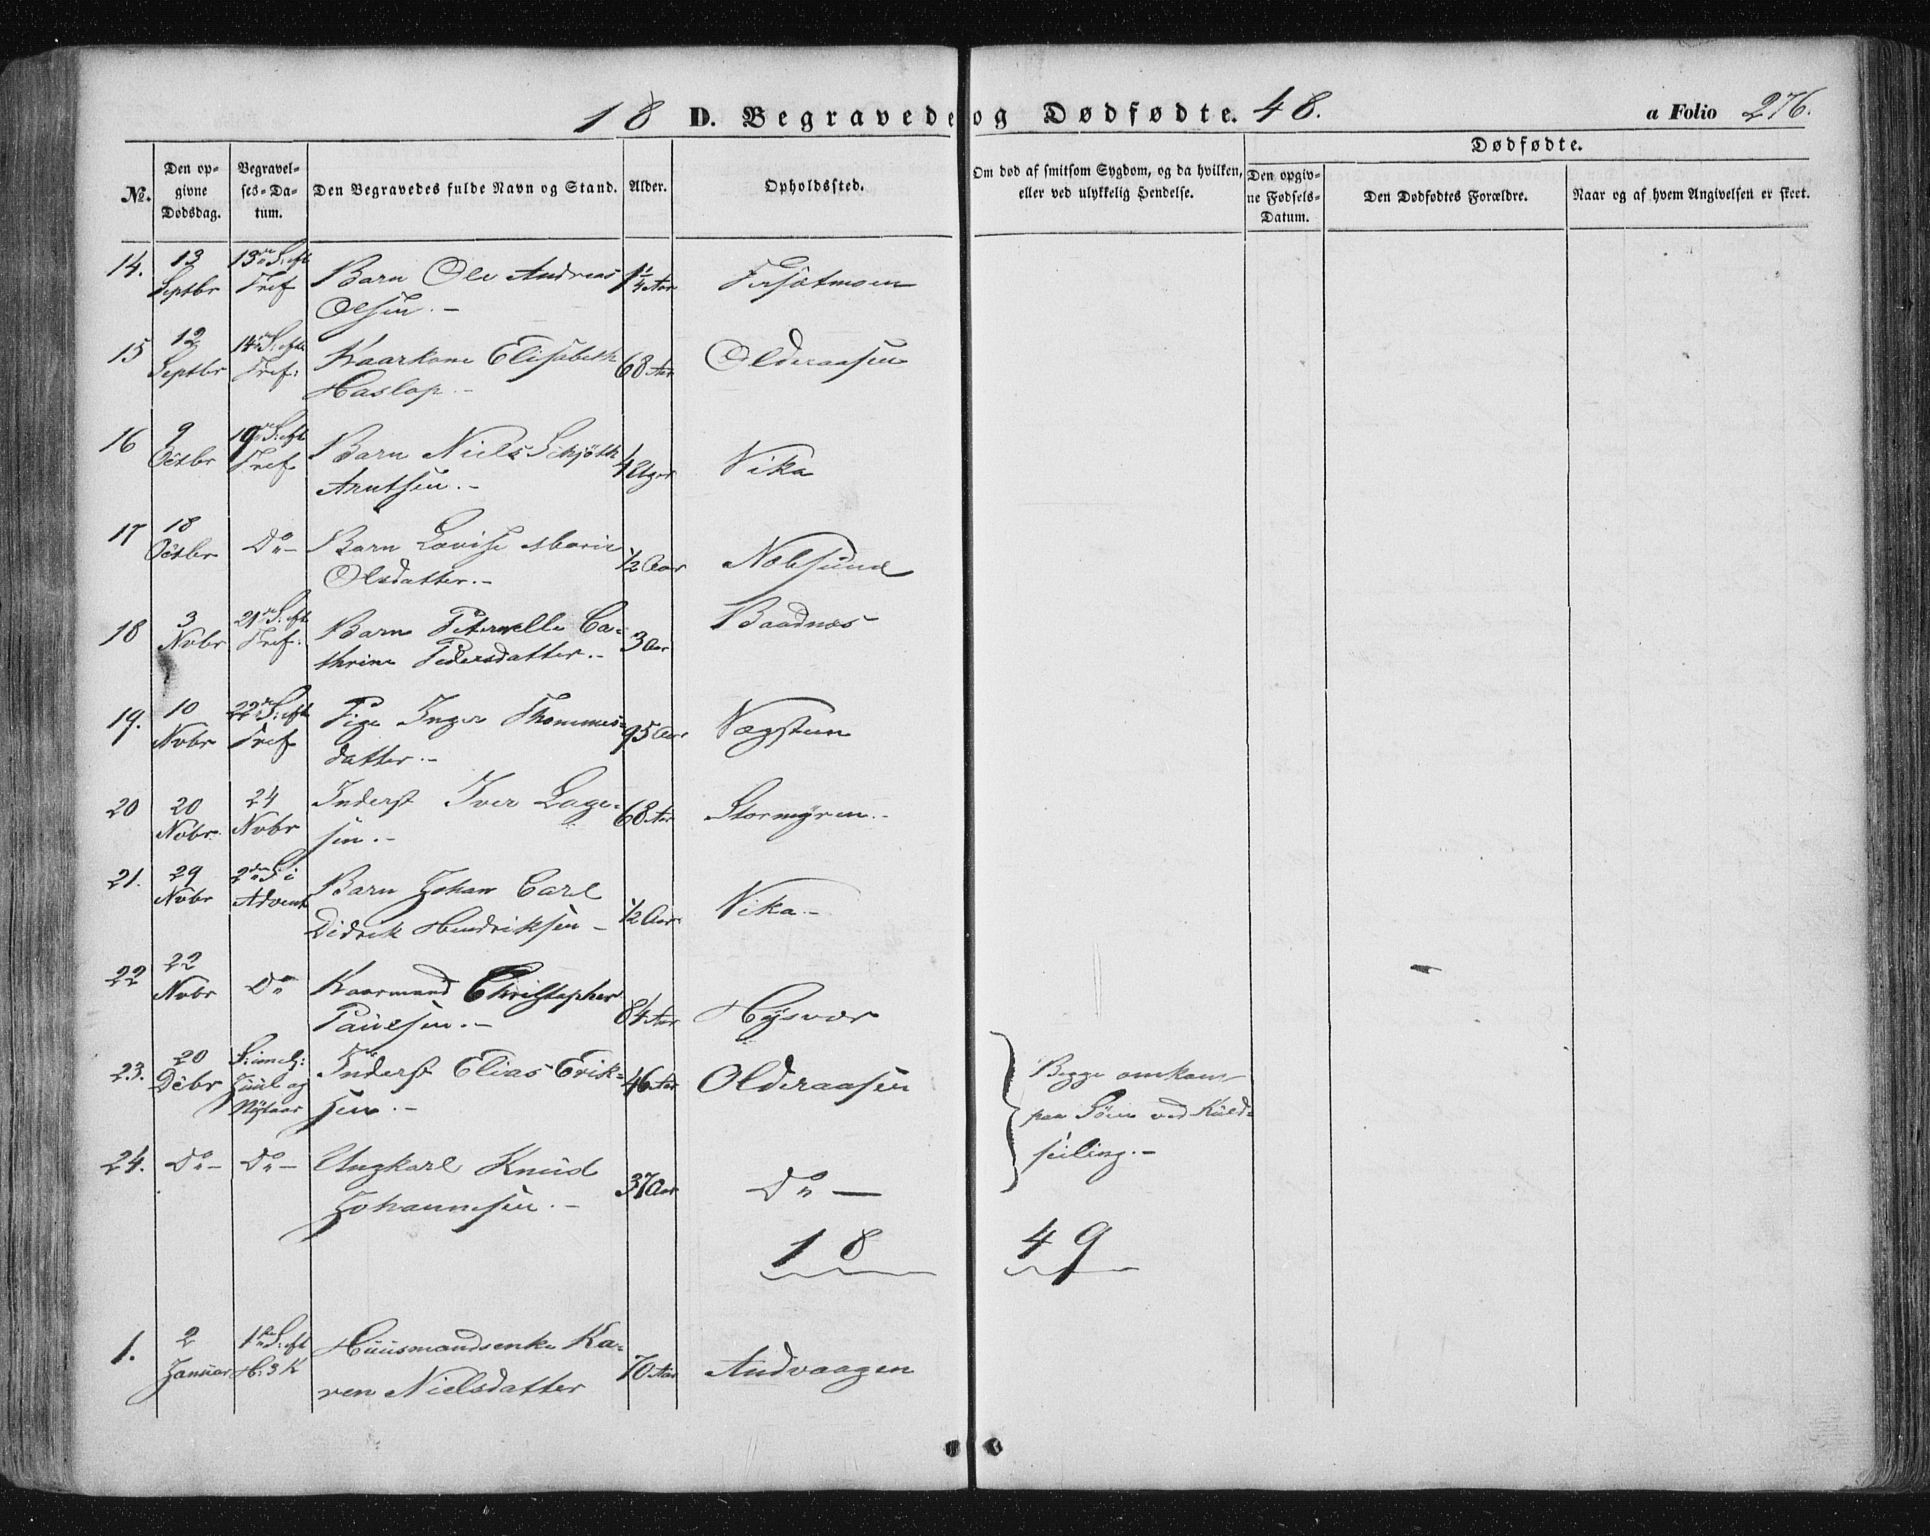 18 D. Begravede og Dødfødte. 48. a Folio 276.
№. Den opgivne Dødsdag. Begravelses-Datum. Den Begravedes fulde Navn og Stand. Alder. Opholdssted. Om død af smitsom Sygdom, og da hvilken, eller ved ulykkelig Hendelse. Dødfødte. Den opgivne Fødsels-Datum. Den Dødfødtes Forældre. Naar og af hvem Angivelsen er skeet.
14. 13 Septbr 13de S: eft Tref Barn Ole Andreas 1¼ Aar
Olsen.-
15 12 Septbr 14de S: eft Tref: Kaarkone Elisebeth 68 Aar Olderaasen
Haslop.-
16 9 Octbr 19de S: eft Tref Barn Niels Schjøth 4 Uger Vika
Arntsen.-
17 18 Octbr Do- Barn Lovise Marie ½ Aar Nobsund
Olsdatter.-
18 3 Nvbr 21de S: eft Tref: Barn Peternelle Ca- 3 Aar Baadnes
thrine Pedersdatter.-
19. 10 Nvbr 22de S: eft Tref Pige Inger Thommes- 95 Aar Vægsteen
datter.-
20 20 Nvbr. 24 Nvbr Inderst Iver Lage- 68 Aar Stormyren.-
sen.-
21. 29 Nvbr 2den S i Advent Barn Johan Carl ½ Aar Vika-
Didrik Hendriksen-
22 22 Nvbr Do Kaarmand Christopher 84 Aar Hysvær
Paulsen.-
23. 20 Dcbr S: imel: Juul og Nytaar Inderst Elias Erik- 46 Aar Olderaasen Begge omkom
sen.- paa Søen ved Kuld-
24. Do- Do- Ungkarl Knud 37 Aar Do- seiling.-
Johannesen.-
18 49
1. 2 Januar 1ste S: eft H: 3 K Huusmandsenke Ka- 70 Aar Andvaagen
ren Nielsdatter